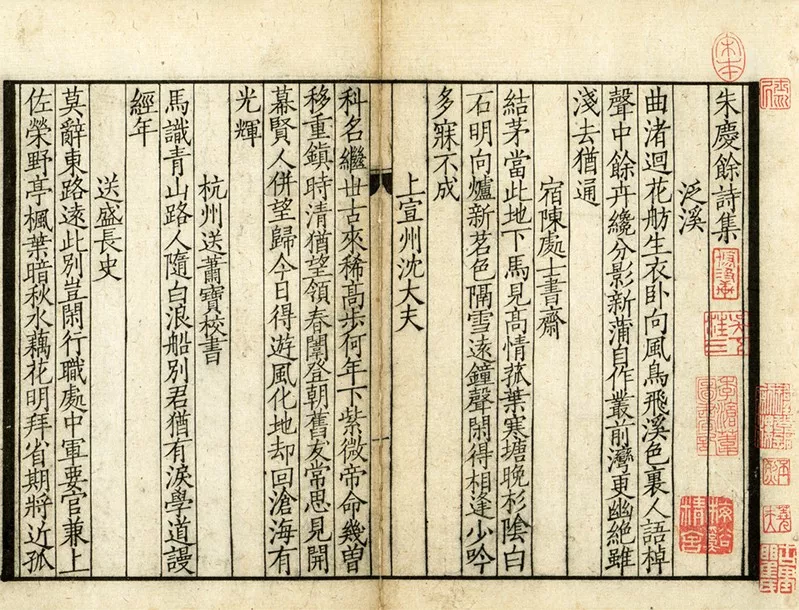 朱慶餘詩集
泛溪
曲渚迴花舫生衣卧向風鳥飛溪色裏人語棹
聲中餘卉纔分影新蒲自作叢前灣更幽絶雖
淺去猶通
宿陳處士書齋
結茅當此地下馬見髙情菰葉寒塘晚杉陰白
石明向爐新茗色隔雪遠鐘聲閑得相逢少吟
多寐不成
上宣州沈大夫
科名繼世古來稀髙步何年下紫微帝命幾曽
移重鎮時清猶望領春闈登朝舊友常思見開
幕賢人併望歸今日得遊風化地却回滄海有
光輝
杭州送蕭寶校書
馬識青山路人隨白浪船別君猶有淚學道謾
經年
送盛長史
莫辭東路遠此別豈閑行職處中軍要官兼上
佐榮野亭楓葉暗秋水藕花明拜省期將近孤